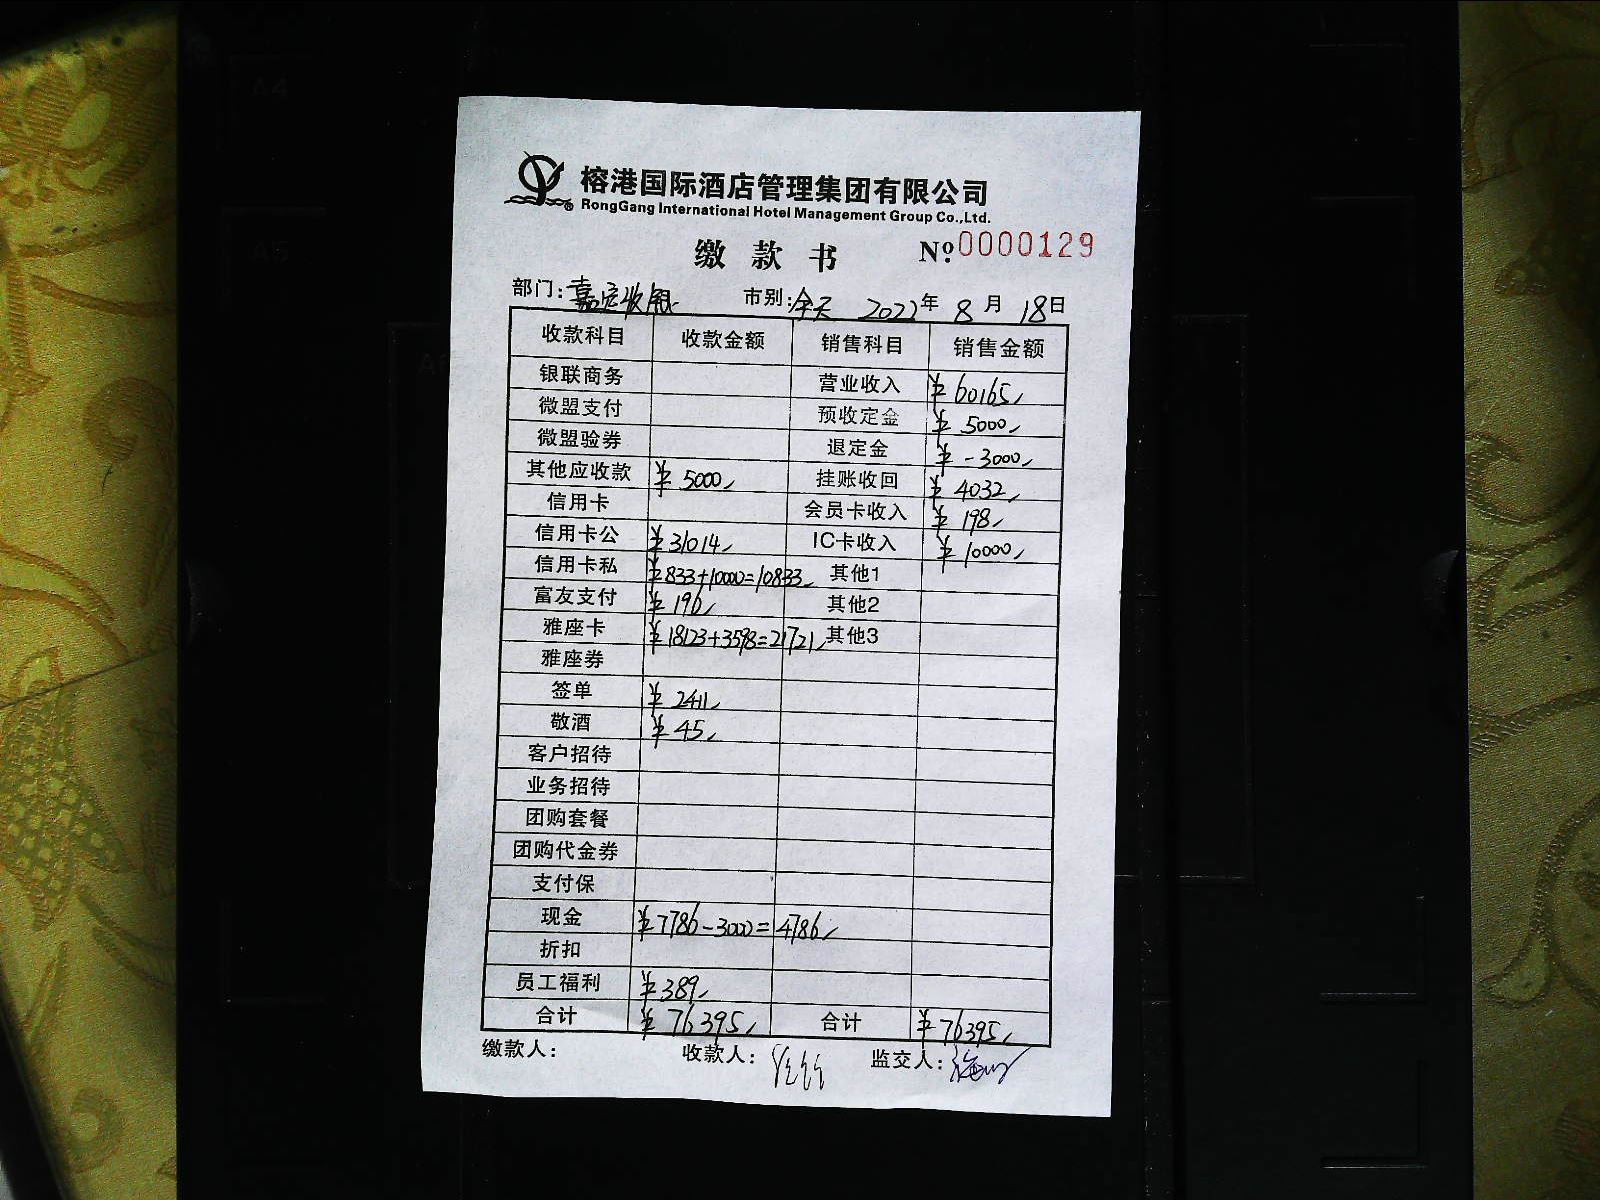 榕港国际酒店管理集团有限公司
RongGang International Hotel Management Group Co.,Ltd.
缴款书 №:0000129
部门:嘉宏收银 市别:全天 2022年8月18日
收款科目 收款金额 销售科目 销售金额
银联商务 营业收入 ¥60165
微盟支付 预收定金 ¥5000
微盟验券 退定金 ¥-3000
其他应收款 ¥5000 挂账收回 ¥4032
信用卡 会员卡收入 ¥198
信用卡公 ¥31014 IC卡收入 ¥10000
信用卡私 ¥833+10000=10833 其他1
富友支付 ¥196 其他2
雅座卡 ¥18123+3598=21721 其他3
雅座券
签单 ¥2411
敬酒 ¥45
客户招待
业务招待
团购套餐
团购代金券
支付保
现金 ¥7786-3000=4786
折扣
员工福利 ¥389
合计 ¥76395 合计 ¥76395
缴款人: 收款人: 监交人: